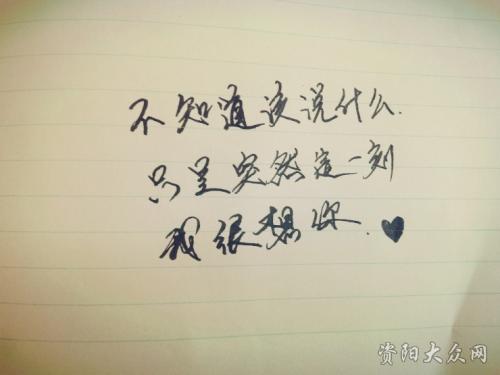 不知道该说什么.
只是突然这一刻
我很想你.♥
资阳大众网